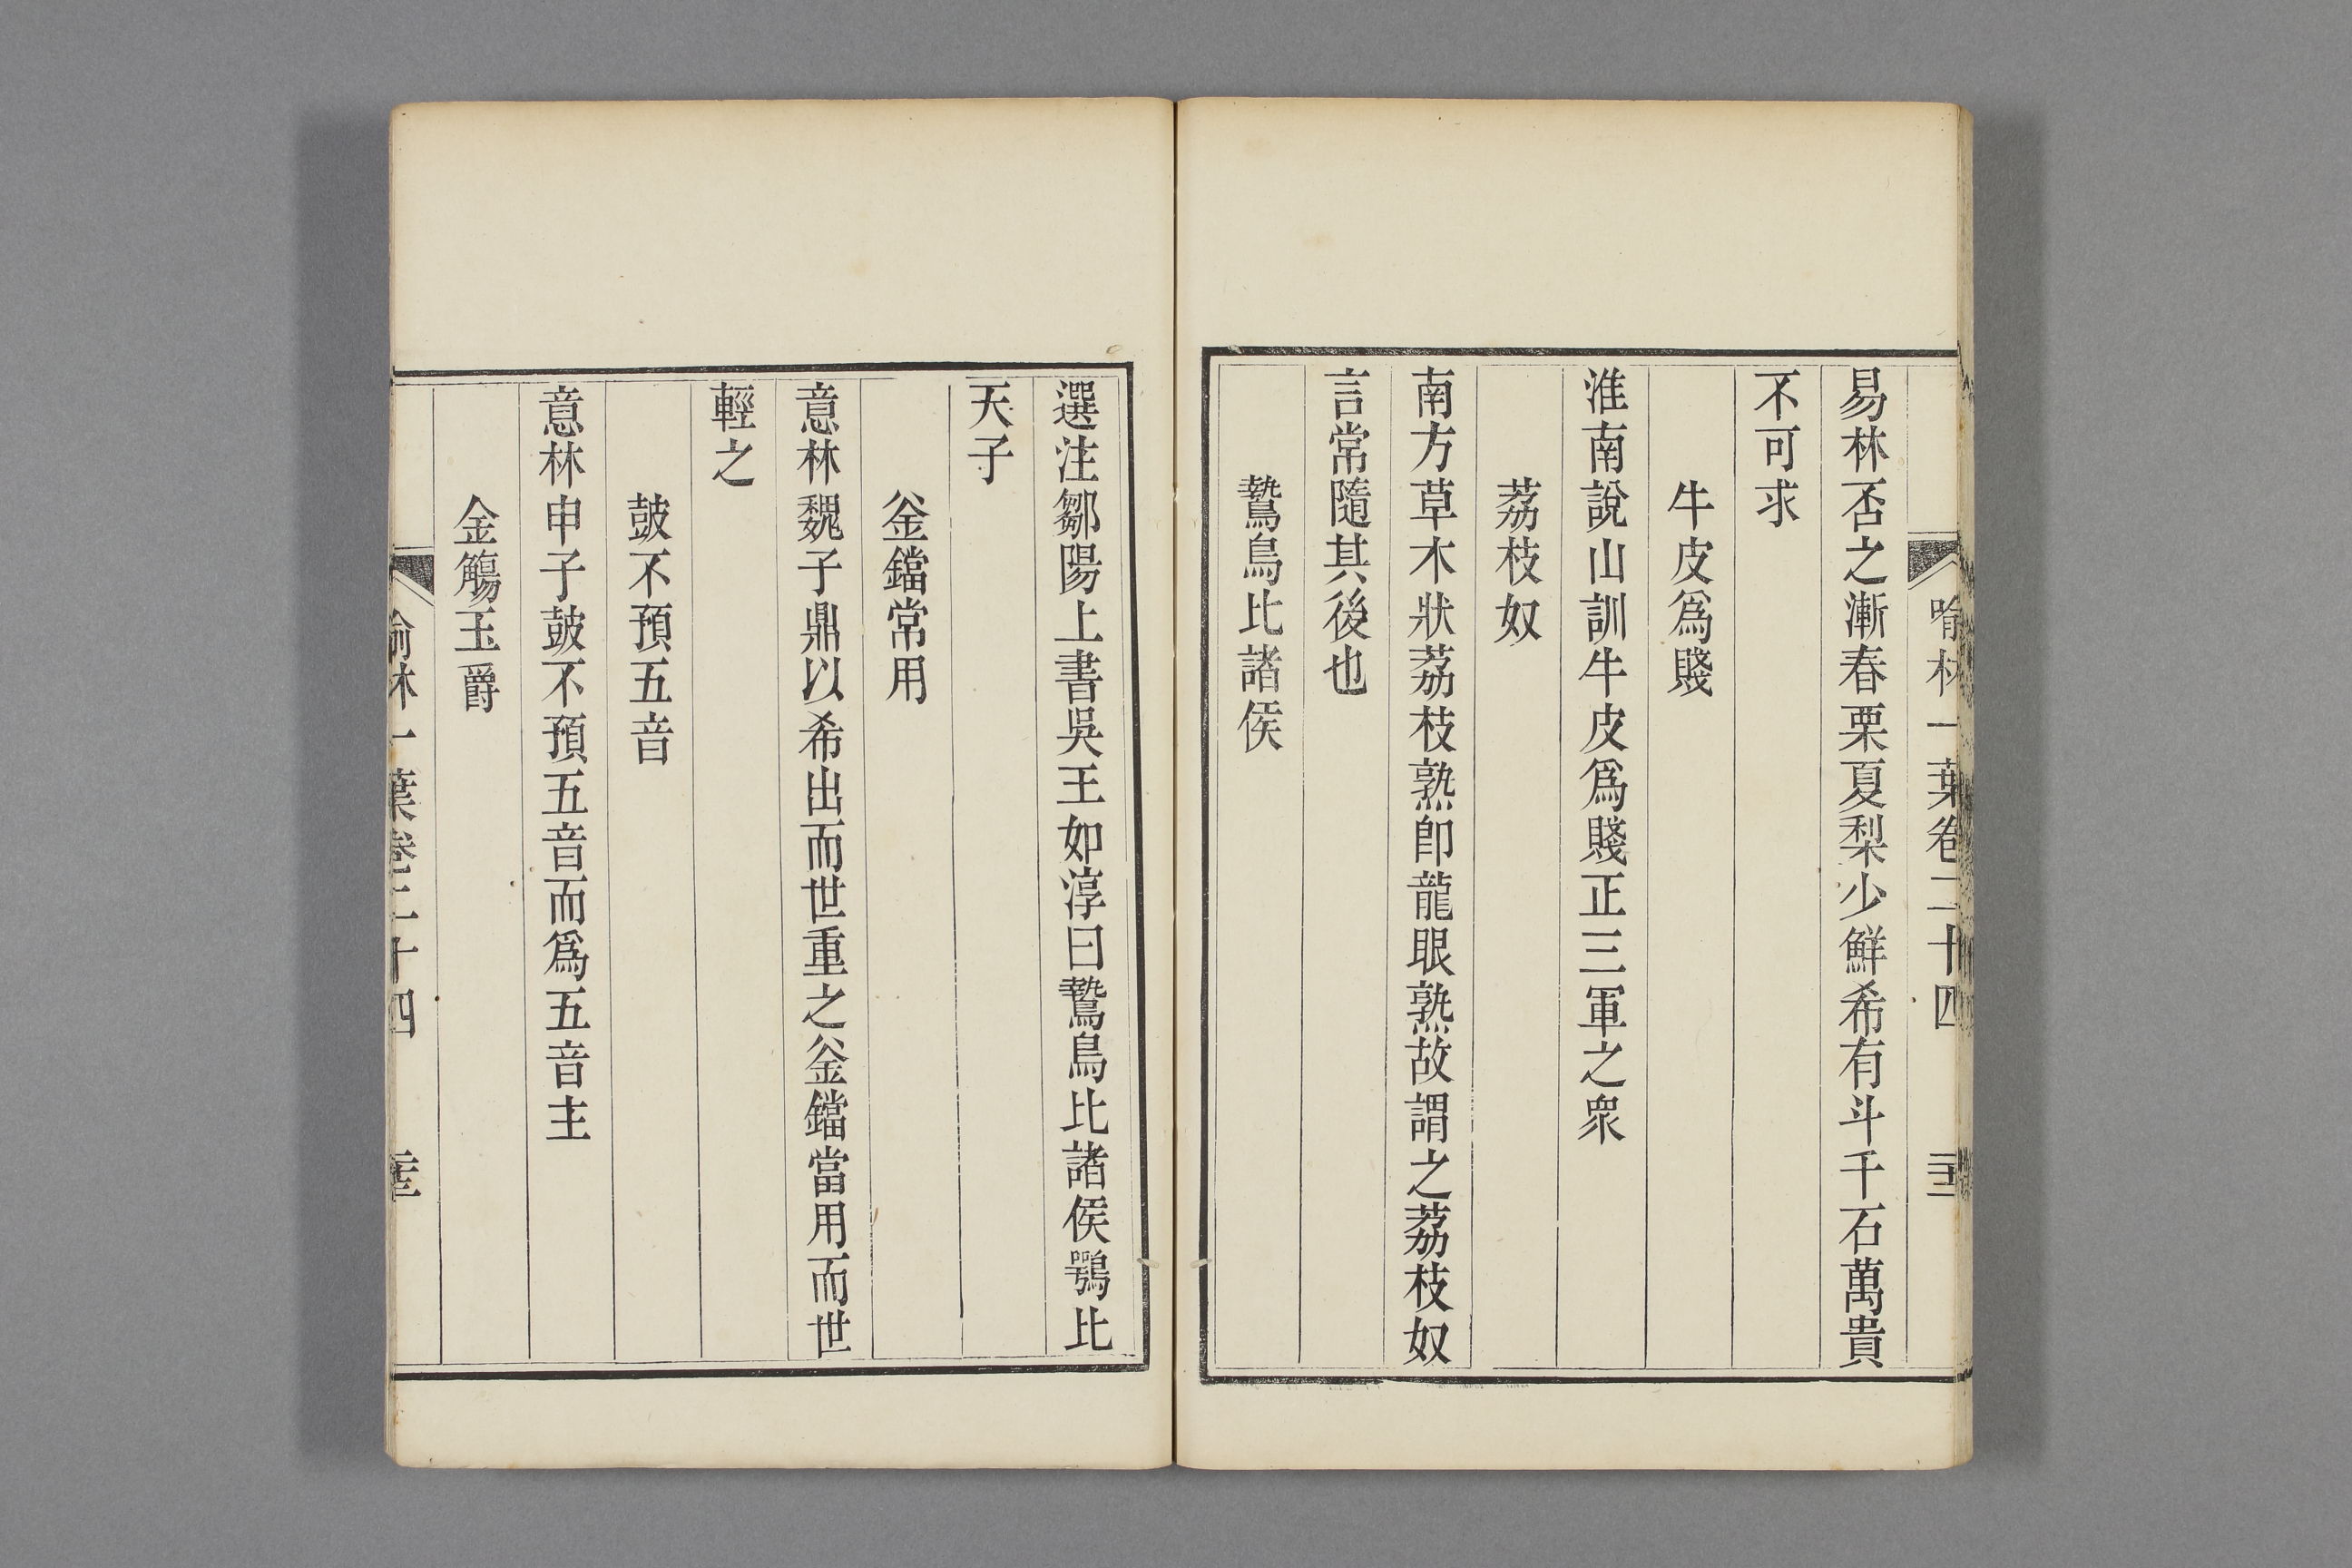 喻林一葉卷二十四
易林否之漸春栗夏梨少鮮希有斗千石萬貴
不可求
牛皮爲賤
淮南說山訓牛皮爲賤正三軍之衆
荔枝奴
南方草木狀荔枝熟卽龍眼熟故謂之荔枝奴
言常隨其後也
鷙鳥比諸侯
選注鄒陽上書吳王如淳曰鷙鳥比諸侯鶚比
天子
釜鐺常用
意林魏子鼎以希出而世重之釜鐺當用而世
輕之
鼓不預五音
意林申子鼓不預五音而爲五音主
金觴玉爵
喻林一葉卷二十四